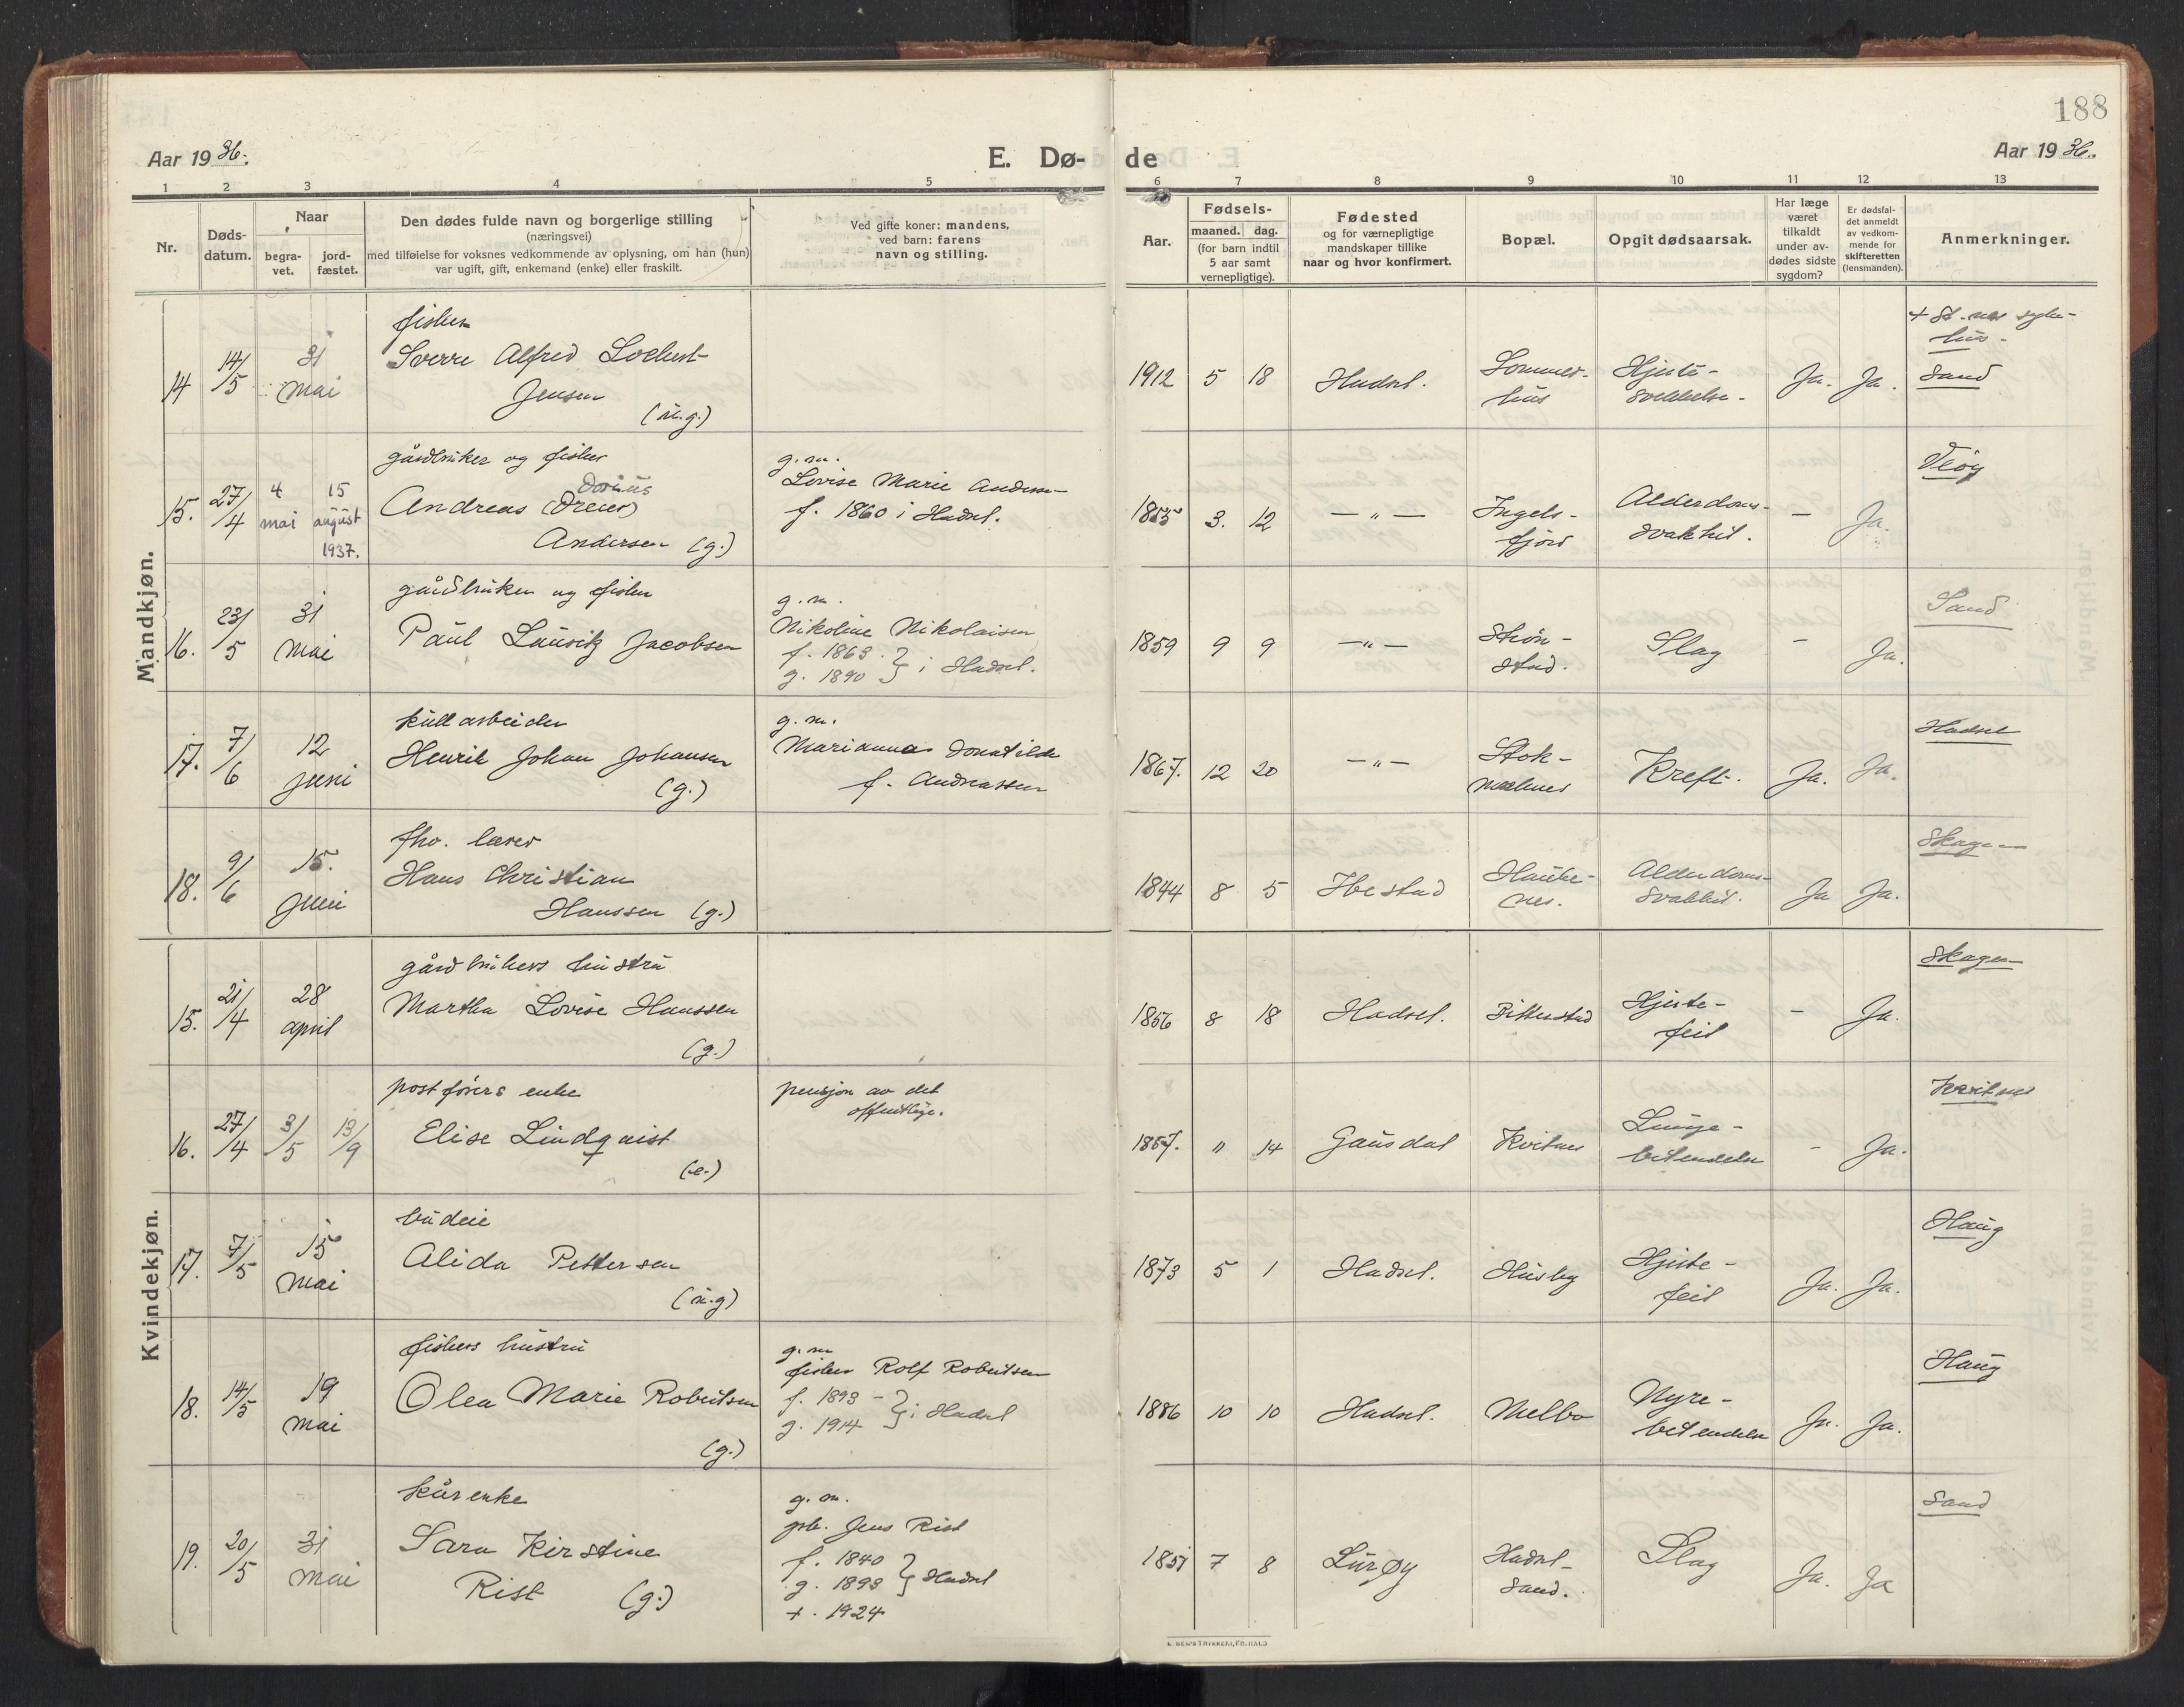 188
Aar 1936.
E. Dø-
de
Aar 1936.
1 2 3 4 5 6 7 8 9 10 11 12 13
Nr.
Døds-
datum.
Naar
begra-
vet.
jord-
fæstet.
Den dødes fulde navn og borgerlige stilling
(næringsvei)
med tilføielse for voksnes vedkommende av oplysning, om han (hun)
var ugift, gift, enkemand (enke) eller fraskilt.
Ved gifte koner: mandens,
ved barn: farens
navn og stilling.
Aar.
Fødsels-
maaned. dag.
(for barn indtil
5 aar samt
vernepligtige).
Fødested
og for værnepligtige
mandskaper tillike
naar og hvor konfirmert.
Bopæl.
Opgit dødsaarsak.
Har læge
været
tilkaldt
under av-
dødes sidste
sygdom?
Er dødsfal-
det anmeldt
av vedkom-
mende for
skifteretten
(lensmanden).
Anmerkninger.
Mandkjøn.
14
14/5
31
mai
fisker
Sverre Alfred
Jensen
(u.g.)
1912 5 18 Hadsel.
Sommer-
hus
Hjerte-
svekkelse.
Ja. Ja.
hus.
Sand
15.
27/4
4
mai
15
august
1937.
gårdbruker og fisker
Dorius
Andreas (Dreier)
Andersen (g.)
g.m.
Lovise Marie Andersen
f. 1860 i Hadsel.
1855 3. 12 —"—
Ingels-
fjord
Alderdoms-
svakhet.
— Ja.
Vløy
16.
23/5
31
mai
gårdbruker og fisker
Paul Lauritz Jacobsen
g.m.
Nikoline Nikolaisen
f. 1863
g. 1890 } i Hadsel.
1859 9 9 —"—
Strøn-
stad.
Slag
— Ja.
Sand
17.
7/6
12
juni
kullarbeider
Henrik Johan Johansen
(g.)
g.m.
Marianna Donatilde
f. Andreassen
1867. 12 20 —"—
Stok-
marknes
Kreft.
Ja. Ja.
Hadsel
18.
9/6
15.
juni
fhv. lærer
Hans Christian
Hanssen (g.)
1844 8 5 Ibestad
Hauke-
nes.
Alderdoms-
svakhet.
Ja Ja.
Skagen
Kvindekjøn.
15.
21/4
28
april
gårdbrukers hustru
Martha Lovise Hanssen
(g.)
1856 8 18 Hadsel. Fitterstad
Hjerte-
feil
— Ja.
Skagen
16.
27/4 3/5 13/9
postførers enke
Elise Lindqvist
(e.)
pensjon av det
offentlige.
1857. " 14 Gausdal Kvitnes
Lunge-
betendelse
- Ja.
Kvitnes
17.
7/5
15
mai
budeie
Alida Pettersen
(u.g)
1873 5 1 Hadsel. Husby
Hjerte-
feil
Ja. Ja.
Haug
18.
14/5
19
mai
fiskers hustru
Olea Marie Robertsen
(g.)
g.m
fisker Rolf Robertsen
f. 1893
g. 1914 } i Hadsel
1886 10 10 Hadsel. Melbo
Nyre-
betendelse
Ja. Ja.
Haug
19.
20/5
31
mai
kårenke
Sara Kirstine
Rist (g.)
g.m.
gbr. Jens Rist
f. 1840
g. 1893 } Hadsel
+. 1924
1851 7 8 Lurøy
Hadsel-
sand.
Slag
Ja. Ja
Sand